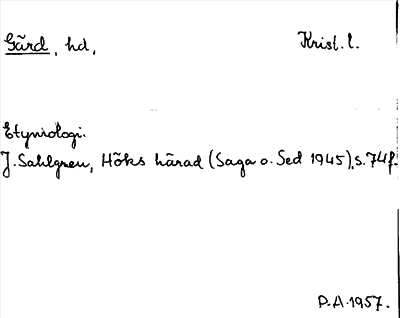 Gärd, hd, Krist. l.
Etymologi.
J. Sahlgren, Höks härad (Saga o. Sed 1945), s. 74f.
P.A. 1957.